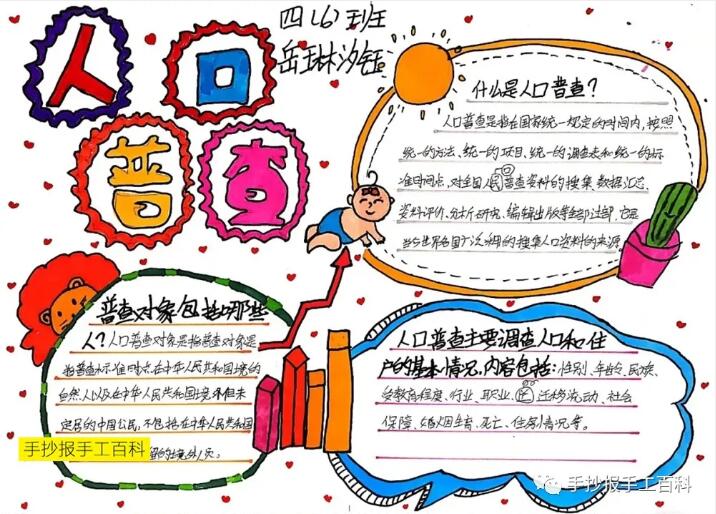 四(6)班
岳琳汐钰
人口
普查
什么是人口普查?
人口普查是指在国家统一规定的时间内,按照
统一的方法、统一的项目、统一的调查表和统一的标
准时间点,对全国人口普查资料的搜集、数据汇总、
资料评价、分析研究、编辑出版等全部过程,它是
当今世界各国广泛采用的搜集人口资料的
来源
普查对象包括哪些
人?人口普查对象是指普查对象是
指普查标准时点在中华人民共和国境内的
自然人以及在中华人民共和国境外但未
定居的中国公民,不包括在中华人民共和国
留的境外人员。
人口普查主要调查人口和住
户的基本情况,内容包括:性别、年龄、民族、
受教育程度、行业、职业、迁移流动、社会
保障、婚姻生育、死亡、住房情况等。
手抄报手工百科
手抄报手工百科